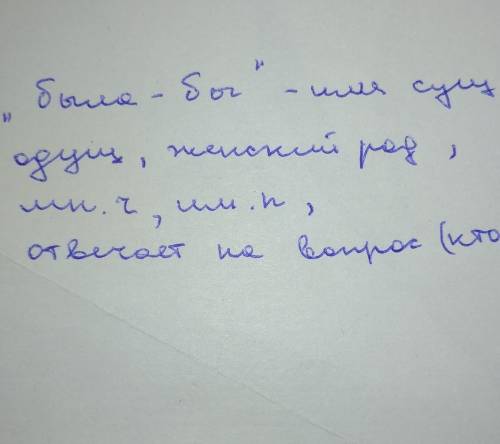 "была-бы" - имя сущ
одуш, женский род,
мн.ч, им.п,
отвечает на вопрос (кто